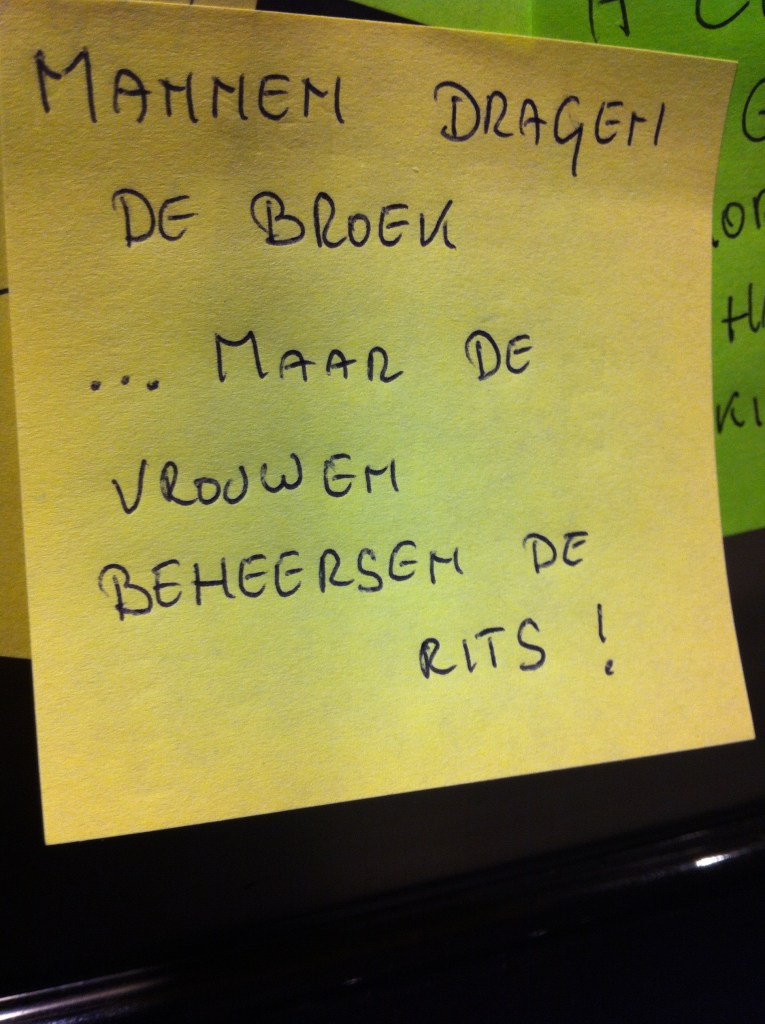 MANNEN DRAGEN
DE BROEK
... MAAR DE
VROUWEN
BEHEERSEN DE
RITS !